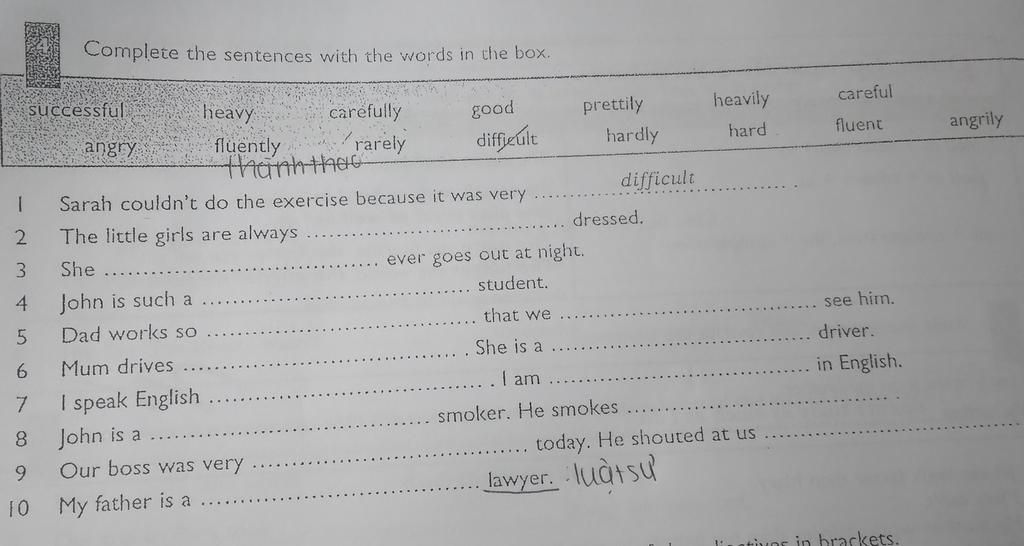 4 Complete the sentences with the words in the box.
successful heavy carefully good prettily heavily careful
angry fluently rarely difficult hardly hard fluent angrily
thành thạo
1 Sarah couldn't do the exercise because it was very ......difficult...... .
2 The little girls are always .............................. dressed.
3 She .............................. ever goes out at night.
4 John is such a .............................. student.
5 Dad works so .............................. that we .............................. see him.
6 Mum drives .............................. . She is a .............................. driver.
7 I speak English .............................. . I am .............................. in English.
8 John is a .............................. smoker. He smokes .............................. .
9 Our boss was very .............................. today. He shouted at us ..............................
10 My father is a .............................. lawyer. : luật sư
in brackets.